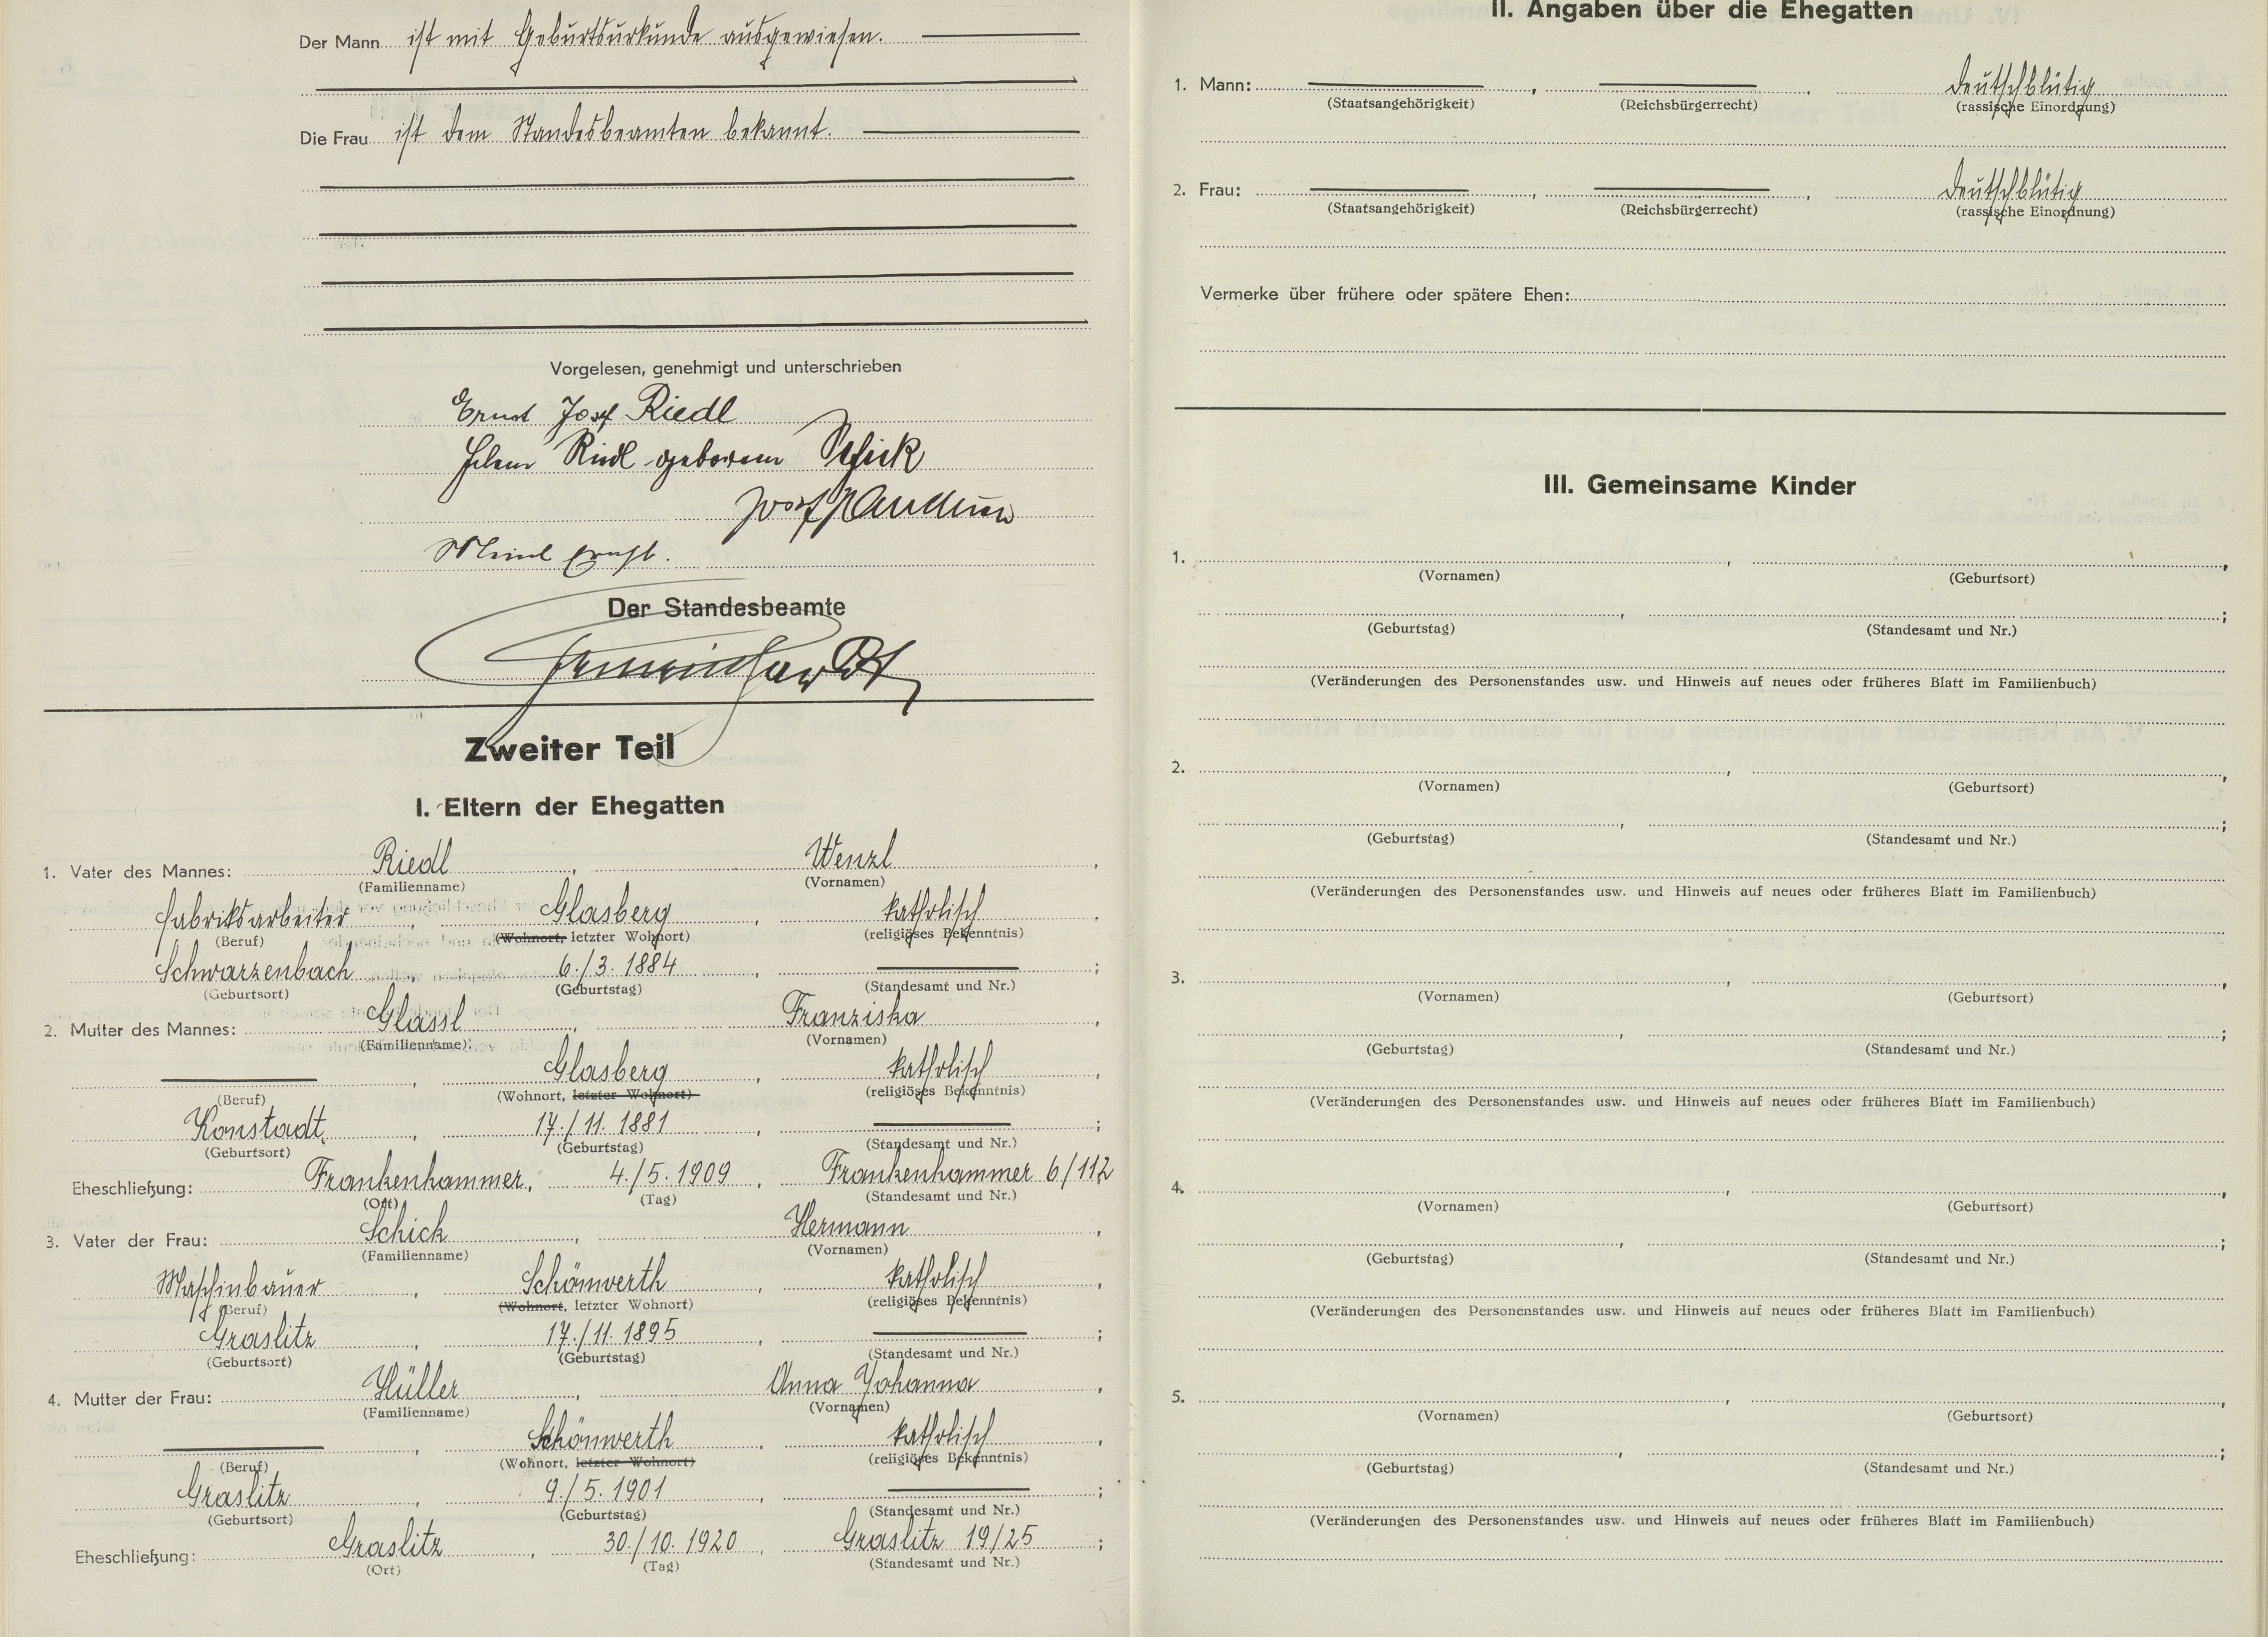 Der Mann ist mit Geburtsurkunde ausgewiesen.
Die Frau ist dem Standesbeamten bekannt.
Vorgelesen, genehmigt und unterschrieben
Ernst Josef Riedl
Riedl geborene Schick
Josef
Ernst.
Der Standesbeamte
Zweiter Teil
I. Eltern der Ehegatten
1. Vater des Mannes: Riedl, Wenzl,
(Familienname) (Vornamen)
Fabriksarbeiter, Glasberg, katholisch,
(Beruf) (Wohnort, letzter Wohnort) (religiöses Bekenntnis)
Schwarzenbach, 6./3. 1884, ;
(Geburtsort) (Geburtstag) (Standesamt und Nr.)
2. Mutter des Mannes: Glassl, Franziska,
(Familienname) (Vornamen)
, Glasberg, katholisch,
(Beruf) (Wohnort, letzter Wohnort) (religiöses Bekenntnis)
Konstadt, 17./11. 1881, ;
(Geburtsort) (Geburtstag) (Standesamt und Nr.)
Eheschließung: Frankenhammer, 4./5. 1909, Frankenhammer 6/112
(Ort) (Tag) (Standesamt und Nr.)
3. Vater der Frau: Schick, Hermann,
(Familienname) (Vornamen)
Maschinbauer, Schönwerth, katholisch,
(Beruf) (Wohnort, letzter Wohnort) (religiöses Bekenntnis)
Graslitz, 17./11. 1895, ;
(Geburtsort) (Geburtstag) (Standesamt und Nr.)
4. Mutter der Frau: Hüller, Anna Johanna,
(Familienname) (Vornamen)
, Schönwerth, katholisch,
(Beruf) (Wohnort, letzter Wohnort) (religiöses Bekenntnis)
Graslitz, 9./5. 1901, ;
(Geburtsort) (Geburtstag) (Standesamt und Nr.)
Eheschließung: Graslitz, 30./10. 1920, Graslitz 19/25;
(Ort) (Tag) (Standesamt und Nr.)
II. Angaben über die Ehegatten
1. Mann: , , deutschblütig
(Staatsangehörigkeit) (Reichsbürgerrecht) (rassische Einordnung)
2. Frau: , , deutschblütig
(Staatsangehörigkeit) (Reichsbürgerrecht) (rassische Einordnung)
Vermerke über frühere oder spätere Ehen:
III. Gemeinsame Kinder
1. , ,
(Vornamen) (Geburtsort)
, ;
(Geburtstag) (Standesamt und Nr.)
(Veränderungen des Personenstandes usw. und Hinweis auf neues oder früheres Blatt im Familienbuch)
2. , ,
(Vornamen) (Geburtsort)
, ;
(Geburtstag) (Standesamt und Nr.)
(Veränderungen des Personenstandes usw. und Hinweis auf neues oder früheres Blatt im Familienbuch)
3. , ,
(Vornamen) (Geburtsort)
, ;
(Geburtstag) (Standesamt und Nr.)
(Veränderungen des Personenstandes usw. und Hinweis auf neues oder früheres Blatt im Familienbuch)
4. , ,
(Vornamen) (Geburtsort)
, ;
(Geburtstag) (Standesamt und Nr.)
(Veränderungen des Personenstandes usw. und Hinweis auf neues oder früheres Blatt im Familienbuch)
5. , ,
(Vornamen) (Geburtsort)
, ;
(Geburtstag) (Standesamt und Nr.)
(Veränderungen des Personenstandes usw. und Hinweis auf neues oder früheres Blatt im Familienbuch)